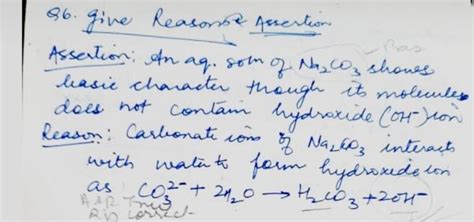 Q6. Give Reason & Assertion
Assertion: An aq. soln of Na2CO3 shows
basic character though its molecules
does not contain hydroxide (OH-) ion
Reason: Carbonate ions of Na2CO3 interacts
with water to form hydroxide ion
as CO3 2- + 2H2O → H2CO3 + 2OH-
A & R True
R is correct